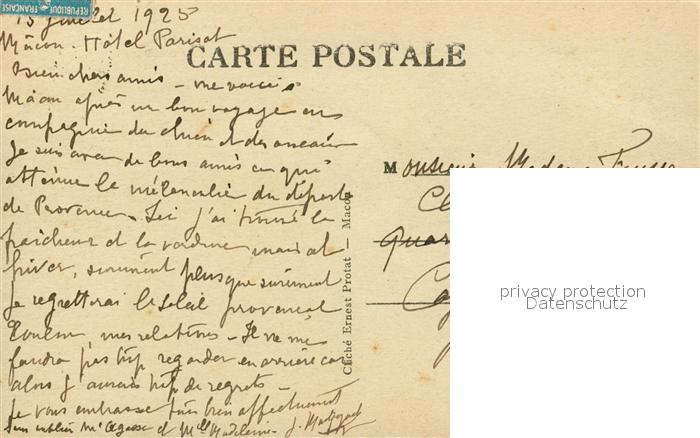 RÉPUBLIQUE FRANÇAISE
15 juillet 1925
Mâcon - Hôtel Parisot
CARTE POSTALE
Bien chers amis - me voici à
Mâcon après un bon voyage en
compagnie du chien et des oiseaux
Je suis avec de bons amis ce qui
atténue la mélancolie du départ
de Provence. Ici j'ai trouvé la
fraîcheur et la verdure mais at
hiver, sûrement plus que sûrement
je regretterai le soleil provençal
Toulon, mes relations - Il ne me
faudra pas trop regarder en arrière car
alors j'aurais trop de regrets -
Je vous embrasse très bien affectueusement
sans oublier Mr et Mlle Madeleine J.
Monsieur Madame
Cliché Ernest Protat — Macon
privacy protection
Datenschutz